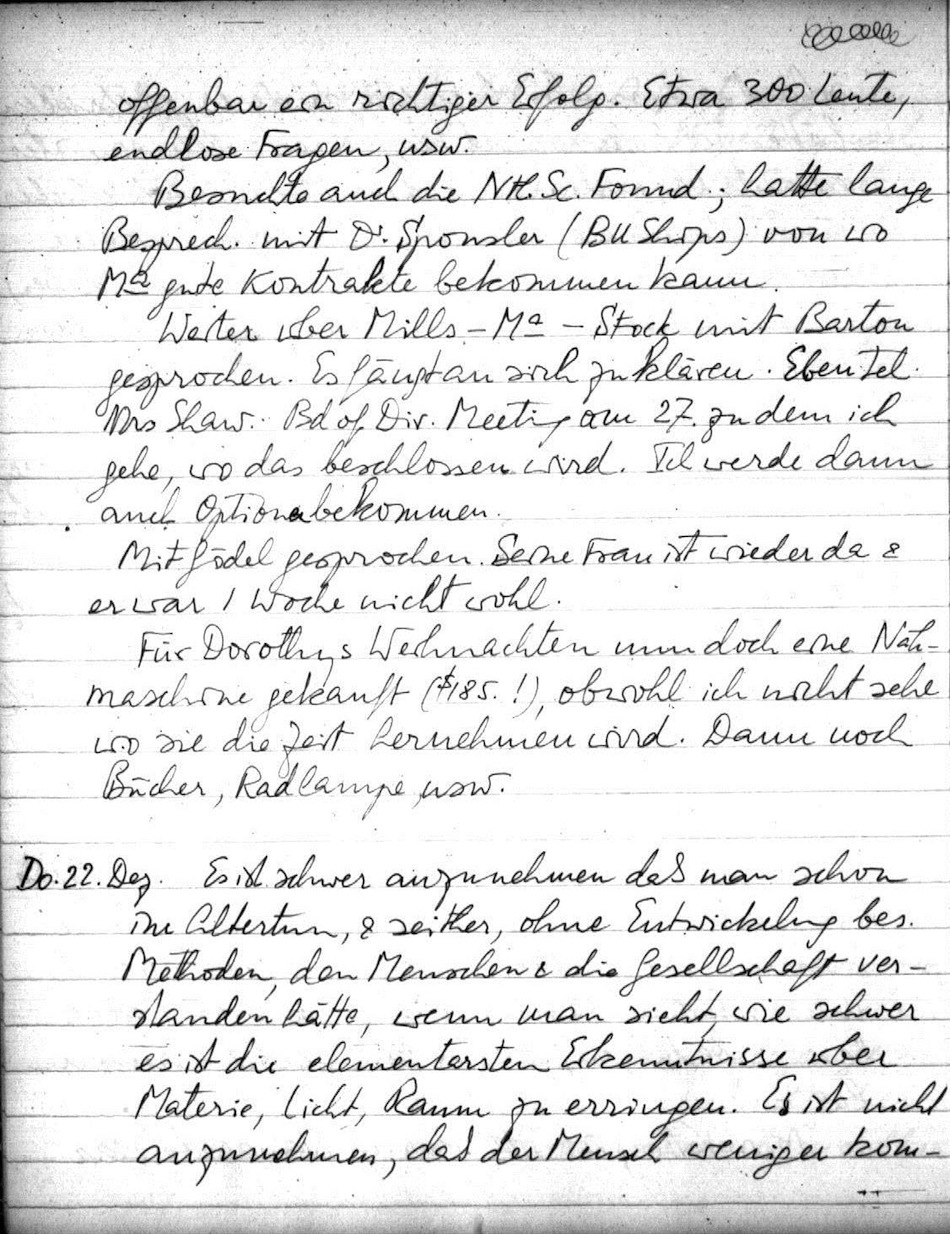 offenbar ein richtiger Erfolg. Etwa 300 Leute,
endlose Fragen, usw.
Besuchte auch die Ntl. Sc. Found.; hatte lange
Besprech. mit Dr. Sponsler (BUShips) von wo
Ma gute Kontrakte bekommen kann.
Weiter über Mills – Ma – Stock mit Barton
gesprochen. Es fängt an sich zu klären. Eben Tel.
Mrs Shaw: Bd of Dir. Meeting am 27. zu dem ich
gehe, wo das beschlossen wird. Ich werde dann
auch Optionen bekommen.
Mit Gödel gesprochen. Seine Frau ist wieder da &
er war 1 Woche nicht wohl.
Für Dorothys Weihnachten nun doch eine Näh-
maschine gekauft ($185.!), obwohl ich nicht sehe
wo sie die Zeit hernehmen wird. Dann noch
Bücher, Radlampe, usw.
Do. 22. Dez. Es ist schwer anzunehmen daß man schon
im Altertum, & seither, ohne Entwickelung bes.
Methoden, den Menschen & die Gesellschaft ver-
standen hätte, wenn man sieht, wie schwer
es ist die elementarsten Erkenntnisse über
Materie, Licht, Raum zu erringen. Es ist nicht
anzunehmen, daß der Mensch weniger kom-